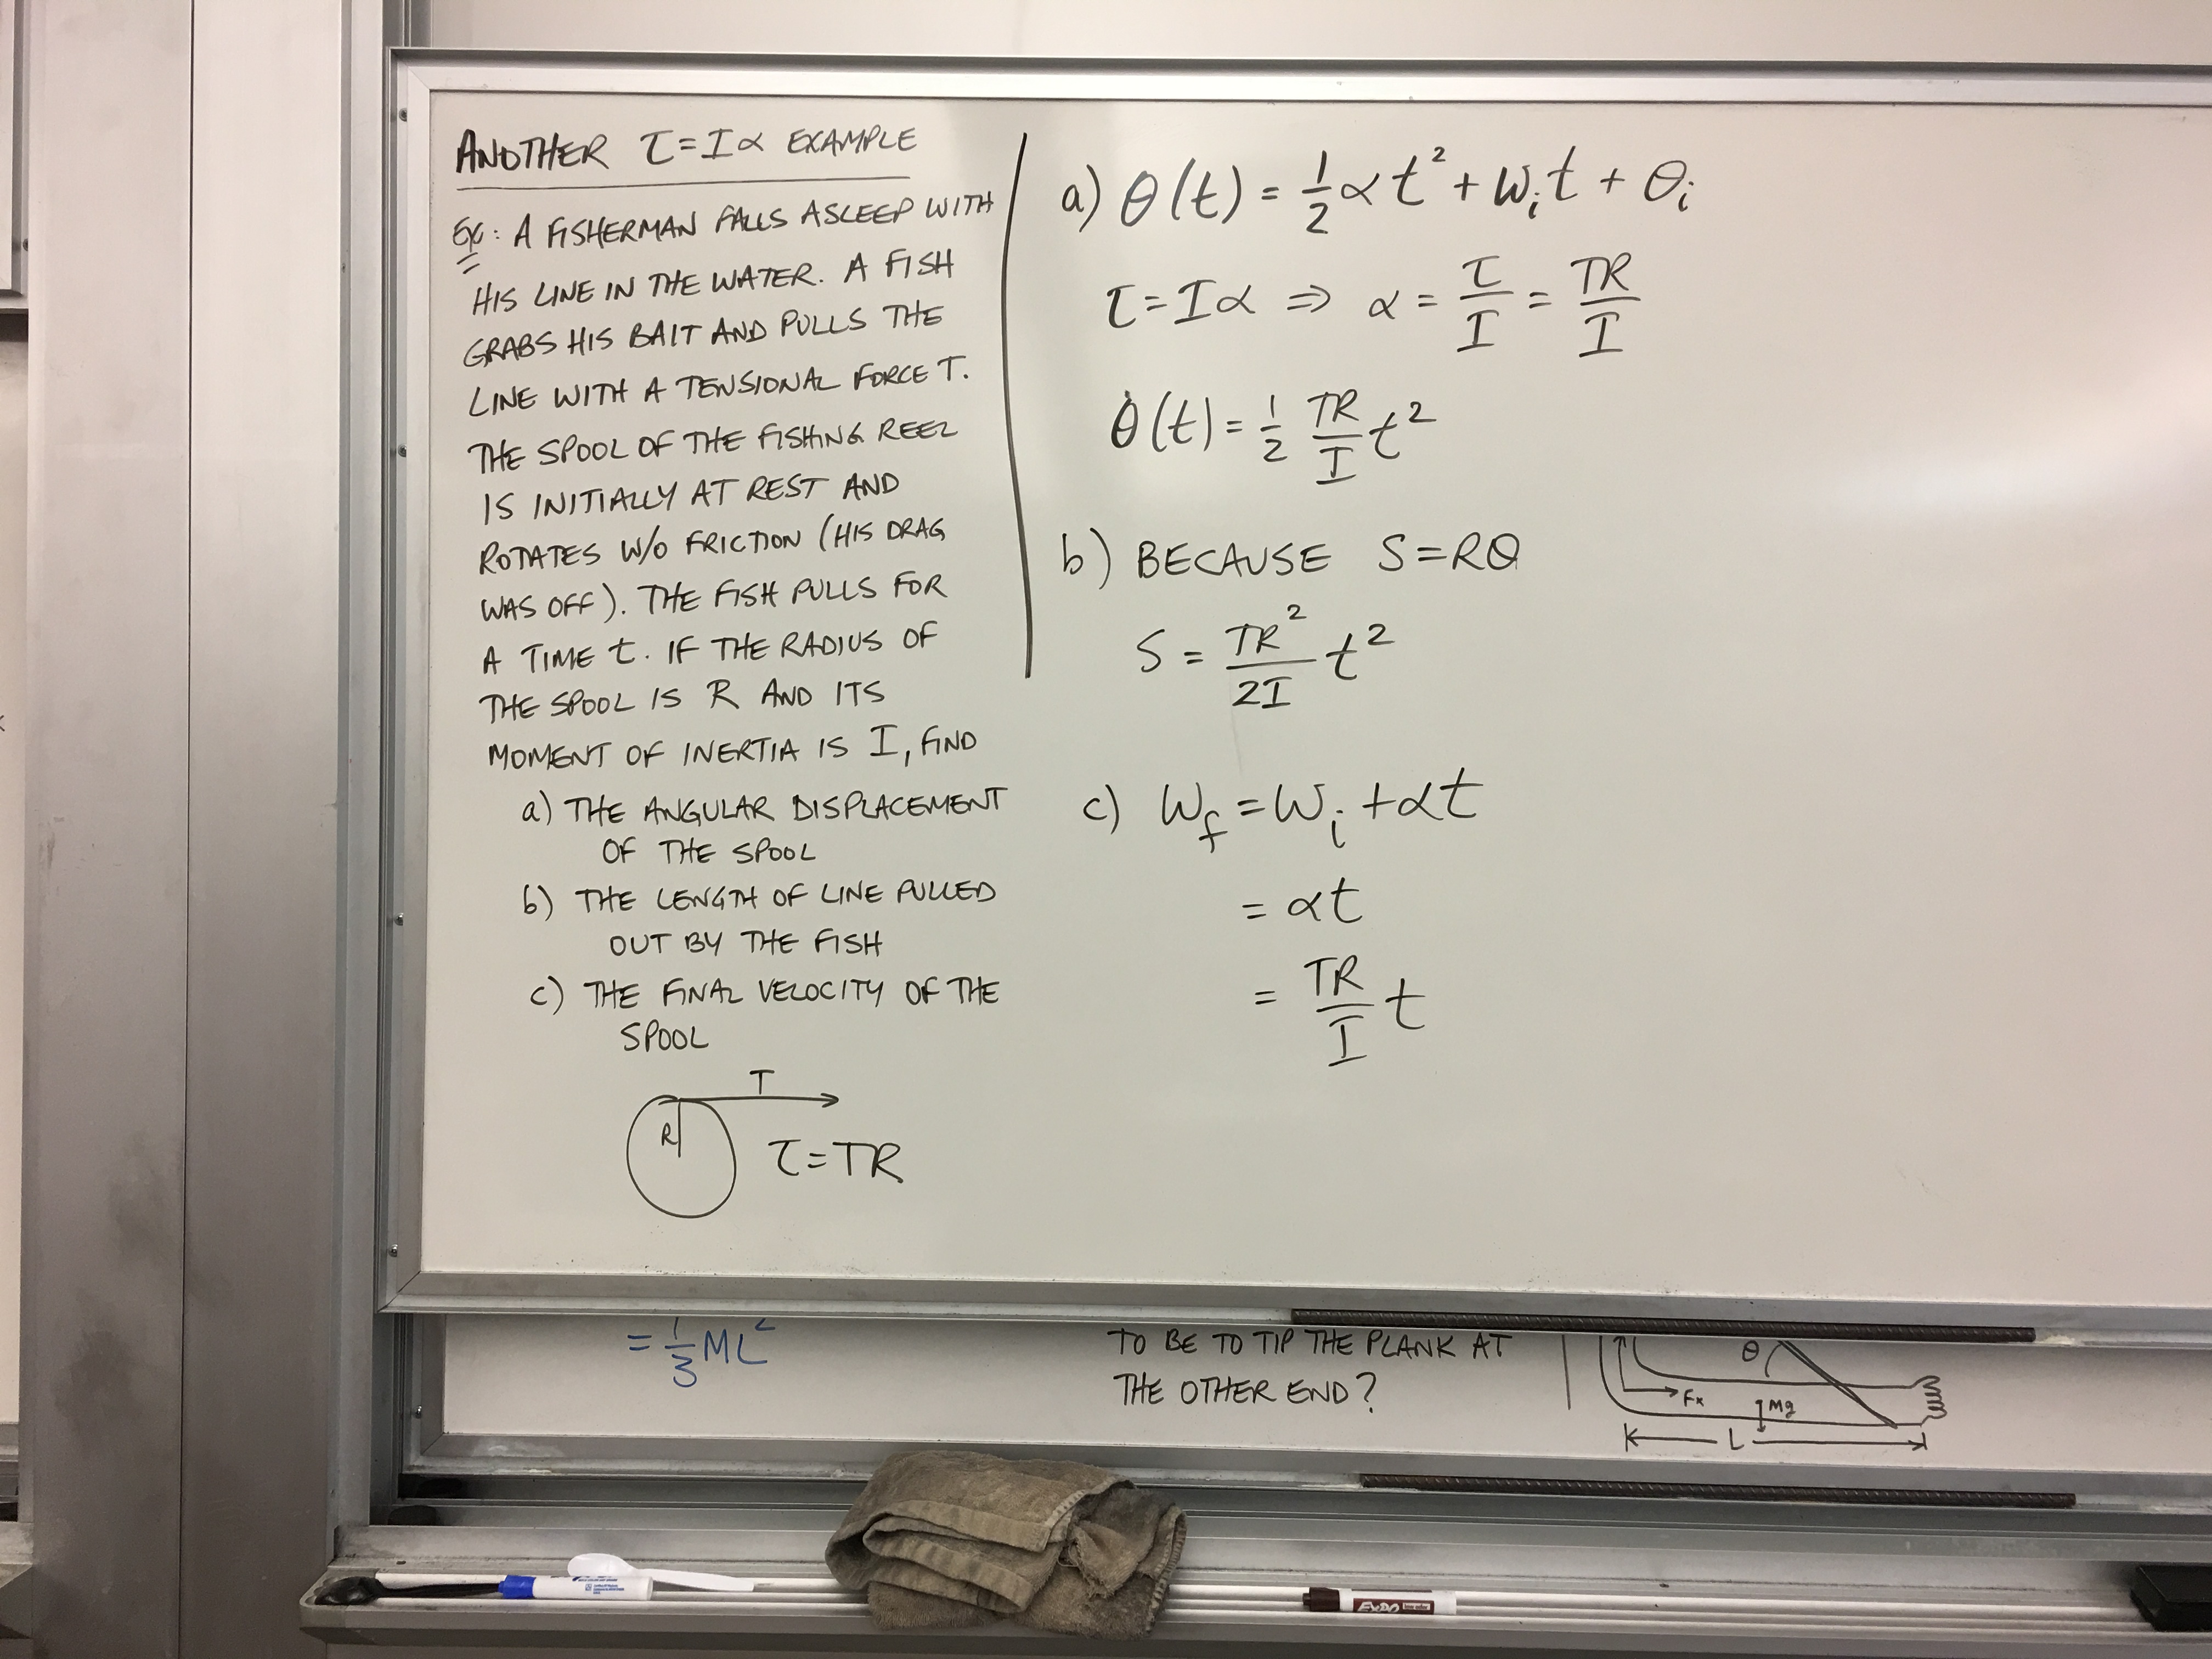 ANOTHER τ=Iα EXAMPLE
EX: A FISHERMAN FALLS ASLEEP WITH
HIS LINE IN THE WATER. A FISH
GRABS HIS BAIT AND PULLS THE
LINE WITH A TENSIONAL FORCE T.
THE SPOOL OF THE FISHING REEL
IS INITIALLY AT REST AND
ROTATES W/O FRICTION (HIS DRAG
WAS OFF). THE FISH PULLS FOR
A TIME t. IF THE RADIUS OF
THE SPOOL IS R AND ITS
MOMENT OF INERTIA IS I, FIND
a) THE ANGULAR DISPLACEMENT
OF THE SPOOL
b) THE LENGTH OF LINE PULLED
OUT BY THE FISH
c) THE FINAL VELOCITY OF THE
SPOOL
T
R
τ=TR
a) θ(t) = 1/2 αt² + ωᵢt + θᵢ
τ=Iα ⇒ α = τ/I = TR/I
θ(t) = 1/2 TR/I t²
b) BECAUSE S=Rθ
S = TR²/2I t²
c) ωf = ωᵢ + αt
= αt
= TR/I t
= 1/3 ML²
TO BE TO TIP THE PLANK AT
THE OTHER END?
θ
Fx
Mg
L
EXPO